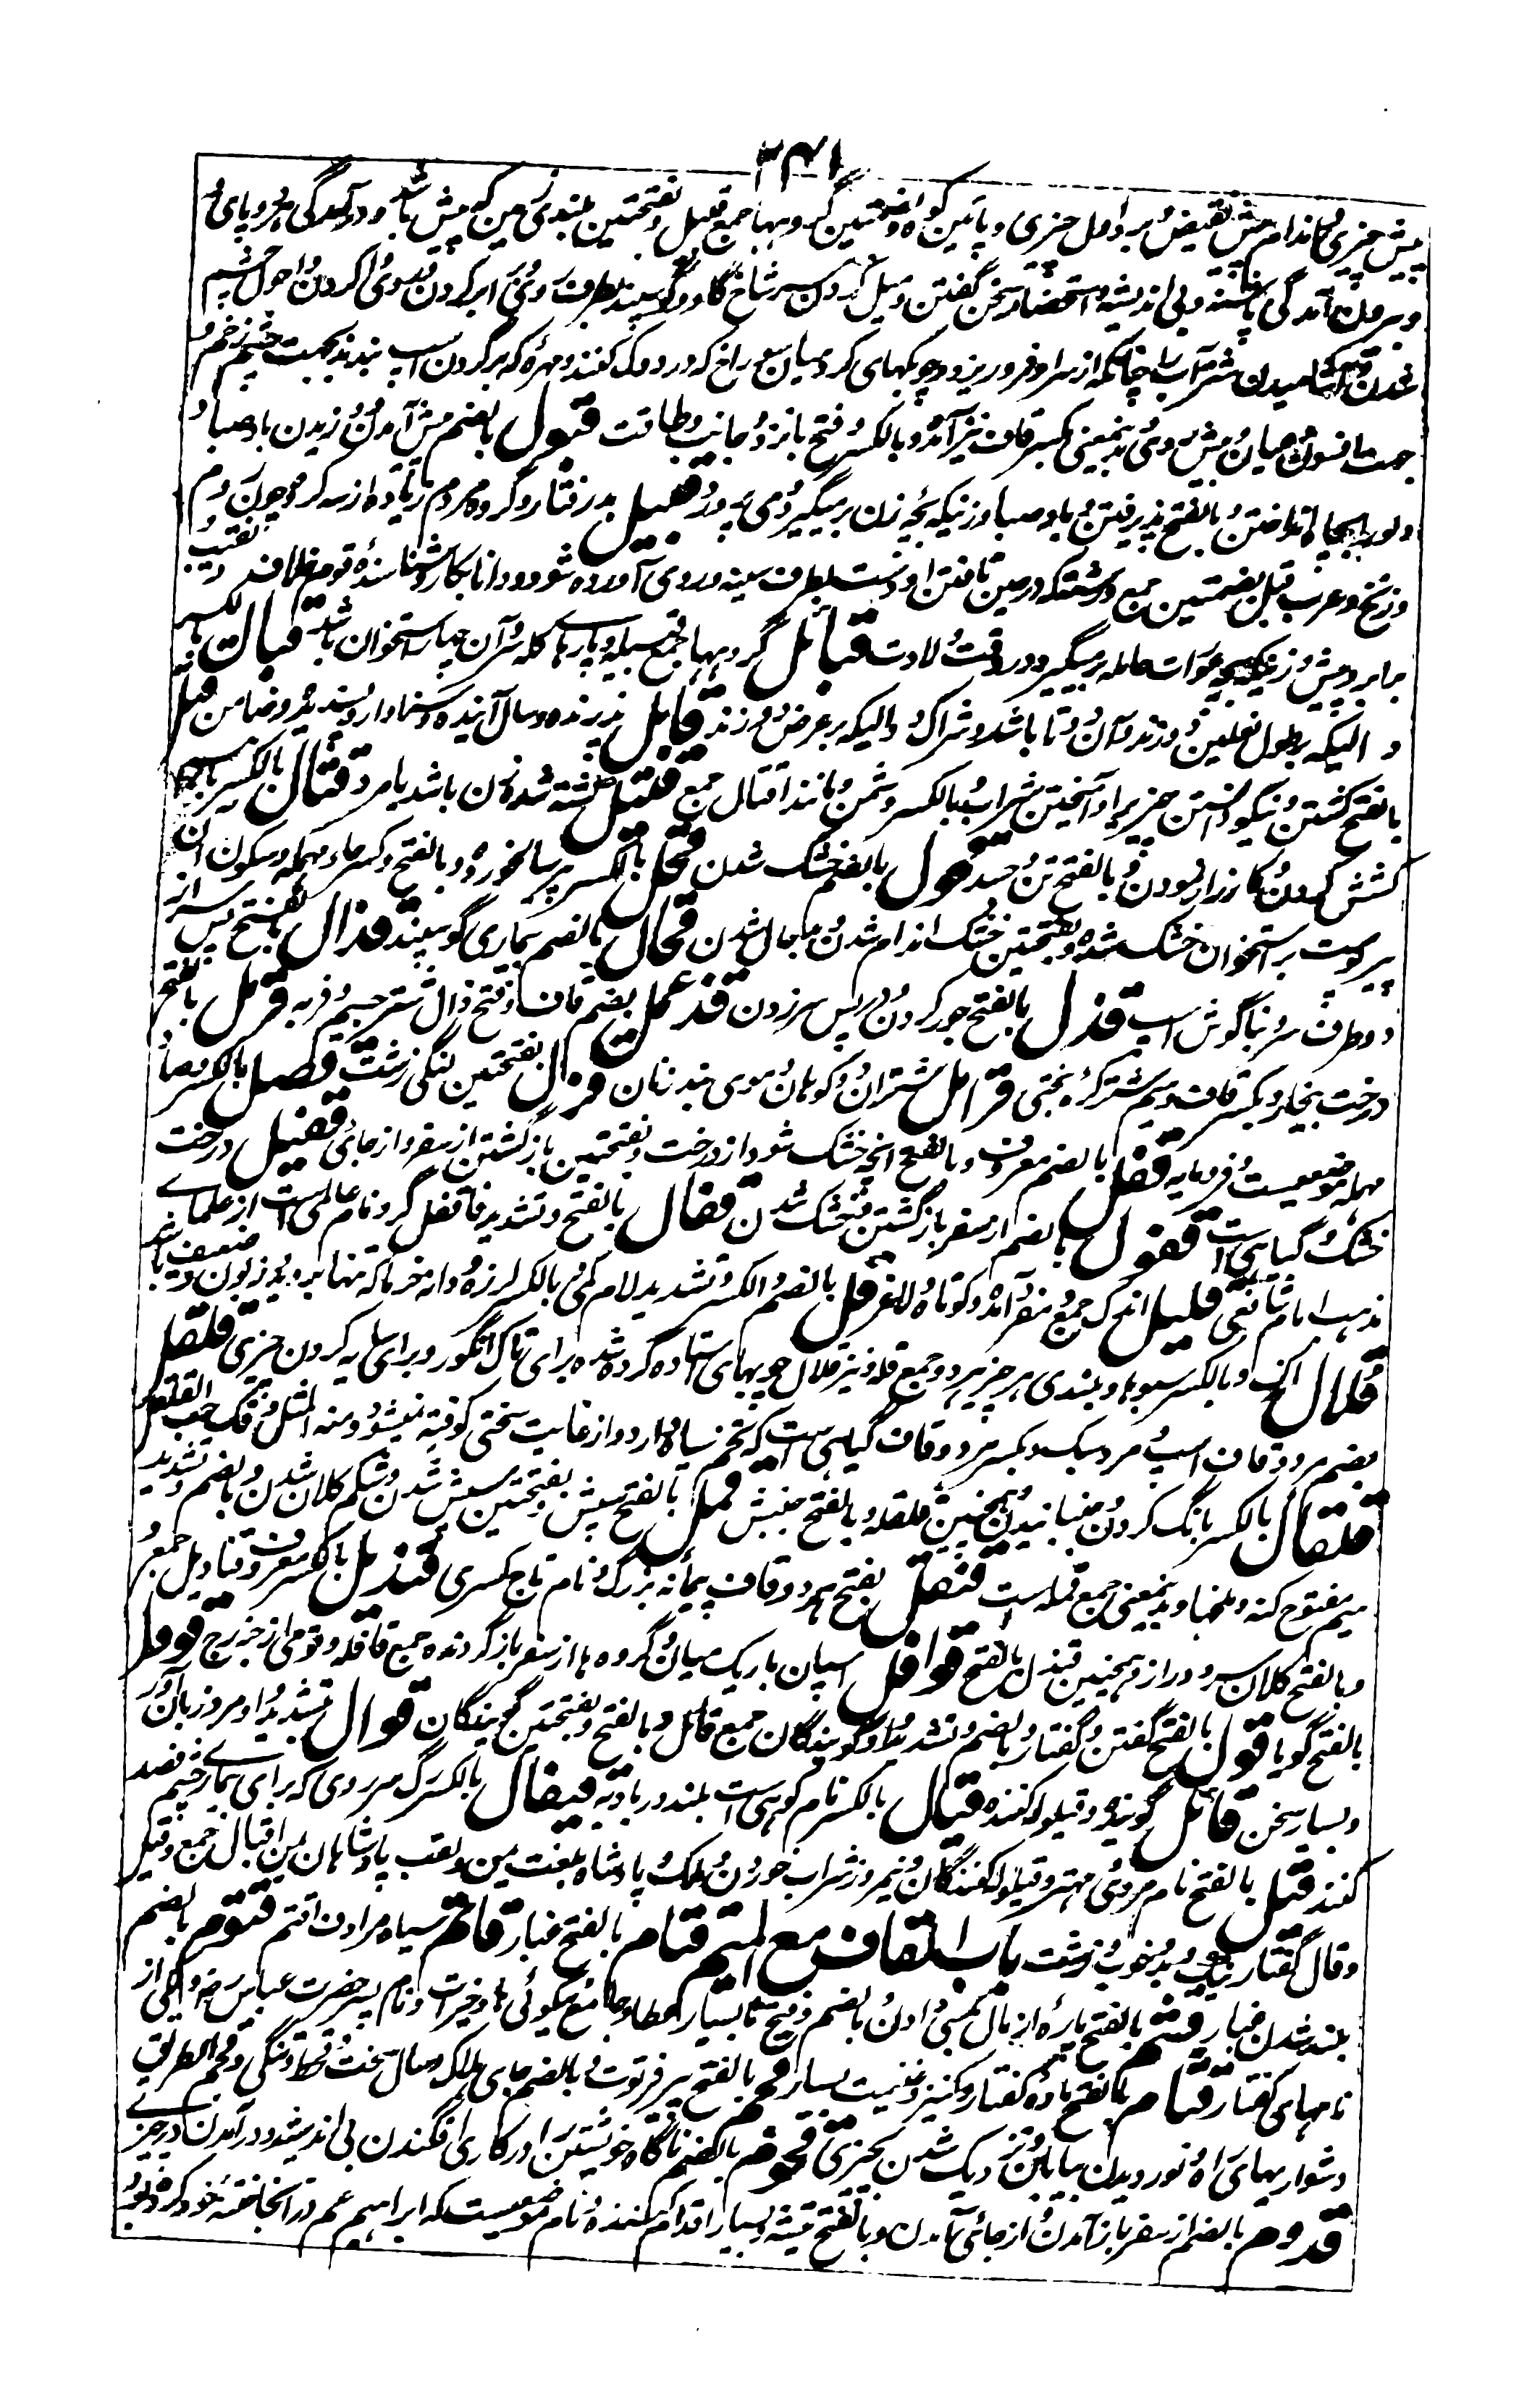 ۳۴۱
پیش چیزی و اندام پیش نقیض دبر و اول چیزی و پائین کوه و بضمتین گروهها جمع قبیل و بفتحتین بلندی زمین که پیش باشد و درآمدگی هر دو پای و
و بیرون آمدگی پاشنه و بی اندیشه و استحضار سخن گفتن و میل کردن سر شاخ گاو و گوسپند بطرف روی و برابر کردن و سوی او کردن و احول چشم
شدن و آشامیدن شتر آب را چنانکه از سر او فرو ریزد و چوبکهای گرد میان سوراخ که در دوک کنند و مهره که بر گردن اسپ بندند بجهت چشم زخم و
جهت افسون میان پیش روی و بدینمعنی بکسر قاف نیز آمده و بالکسر و فتح با نزد و جانب و طاقت قبول بالضم پیش آمدن و وزیدن باد صبا و
دلو را بچاه انداختن و بالفتح پذیرفتن و باد صبا و زنیکه بچه زن برمیگیرد و می پرورد قبیل پذرفتار و گروه مردم زیاده از سه کس چون روم
و زنج و عرب قبل بضمتین جمع و رشته که در حین تافتن او دست بطرف سینه و روی آورده شود و دانا بکار و شناسنده قوم خلاف دبیر و نقیب
برابر و پیش و زنیکه بچه عورات حامله برمیگیرد در وقت ولادت قبائل گروهها جمع قبیله و پارهای کله سر و آن چهار استخوان باشد قبال بالکسر
دوالیکه بطول نعلین دوزند و آن دو تا باشد و شراک دوالیکه بر عرض دوزند قابل پذیرنده و سال آینده و سزاوار و پسندیده و ضامن قتل
بالفتح کشتن و نیکو دانستن چیزیرا و آمیختن شراب و بالکسر دشمن و مانند اقتال جمع قتیل کشته شده زن باشد یا مرد قتال بالکسر با هم
کشش کردن و کارزار نمودن و بالفتح تن و جسد قحول بالضم خشک شدن قحل بالکسر پیر سالخورده و بالفتح و کسر حاء مهمله و سکون آن
پیر پوست بر استخوان خشک شده و بفتحتین خشک اندام شدن و بدحال شدن قحال بالضم بیماری گوسپند قذال بالفتح پس سر از
دو طرف سر و بناگوش اسپ قذل بالفتح جور کردن و بر پس سر زدن قذعمل بضم قاف و فتح ذال شتر جسیم و فربه قرمل بالفتح
درخت بیخار و بکسر قاف و میم شتر کره بختی قرامل شتران دو کوهان و موی بند زنان قزل بفتحتین لنگی زشت قصل بالکسر و صاد
مهمله موضعیست و فرومایه قفل بالضم معروف و بالفتح آنچه خشک شود از درخت و بفتحتین بازگشتن از سفر و از جای قفیل درخت
خشک و گیاهی است قفول بالضم از سفر بازگشتن و خشک شدن قفال بالفتح و تشدید فا قفل گر و نام عالمی است از علمای
مذهب امام شافعی قلیل اندک جمع و مفرد آمده و کوتاه و لاغر قل بالضم و الکسر و تشدید لام کمی و بالکسر لرزه و دانه خرما که تنها بروید و زبون و ضعیف باشد
قلال اندک و بالکسر سبوها و بلندی هر چیز هر دو جمع قله و نیز قلال چوبهای ایستاده کرده شده برای تاک انگور و برای سایه کردن چیزی قلقل
بضم هر دو قاف اسپ و مرد سبک و بکسر هر دو قاف گیاهی است که تخم سیاه دارد و از غایت سختی کوفته نمیشود و منه المثل دقک حب القلقل
قلقال بالکسر بانگ کردن و جنبانیدن و همچنین قلقله و بالفتح جنبش قمل بالفتح سپش و بفتحتین سپش شدن و شکم کلان شدن و بالضم و تشدید
میم مفتوح کنه و ملخها و بدینمعنی جمع قمله است قنقل بفتح هر دو قاف پیمانه بزرگ و نام تاج کسری قندیل بالکسر معروف و قنادیل جمع و
و بالفتح کلان سر و دراز و همچنین قندل بالفتح قوافل اسپان باریک میان و گروه ها از سفر بازگردنده جمع قافله و قومی از خزرج قوقل
بالفتح گویا قول بالفتح گفتن و گفتار و بالضم و تشدید واو گویندگان جمع قائل و بالفتح و بفتحتین گویندگان قوال بتشدید واو مرد زبان آور
و بسیار سخن قائل گوینده و قیلوله کننده قیال بالکسر نام کوهی است بلند در بادیه قیفال بالکسر رگ سر روی که برای بیماری چشم فصد
کنند قیل بالفتح نام مردی و مهتر و قیلوله کنندگان و نیمروز شراب خوردن و ملک و پادشاه بلغت یمن و لقب پادشاهان یمن اقیال جمع و قیل
و قال گفتار نیک و بد و خوب و زشت باب القاف مع المیم قتام بالفتح غبار قاتم سیاه مرادف اقتم قتوم بالضم
بلند شدن غبار قثم بالفتح پاره از مال بکسی دادن و بالضم و فتح ثا بسیار عطا و جامع نیکوئی ها و خیرات و نام پسر حضرت عباس رض و یکی از
نامهای کفتار قثام بالفتح ماده کفتار و کنیز و غنیمت بسیار قحم بالفتح پیر فرتوت و بالضم جای هلاک و سال سخت و قحط و تنگی و قحم الطریق
دشواریهای راه و نوردیدن بیابان و نزدیک شدن بچیزی قحوم بالضم ناگاه خویشتن را در کاری افگندن بی اندیشه و درآمدن در چیزی
قدوم بالضم از سفر باز آمدن و از جائی آمدن و بالفتح تیشه و بسیار اقدام کننده و نام موضعیست که ابراهیم عم در آنجا ختنه خود کرد و